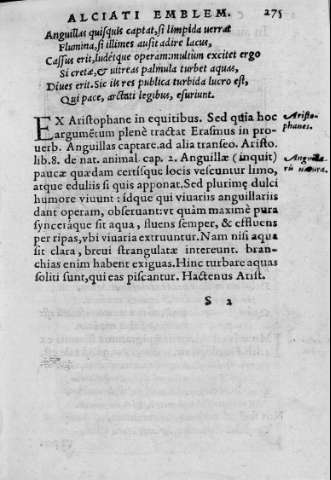 ALCIATI EMBLEM. 275
Anguillas quisquis captat, si limpida uerrat
Flumina, si illimes ausit adire lacus,
Cassus erit, ludétque operam: multum excitet ergo
Si cretæ, & uitreas palmula turbet aquas,
Diues erit. Sic iis res publica turbida lucro est,
Qui pace, arctati legibus, esuriunt.
EX Aristophane in equitibus. Sed quia hoc
argumētum plenè tractat Erasmus in pro-
uerb. Anguillas captare. ad alia transeo. Aristo.
lib. 8. de nat. animal. cap. 2. Anguillæ (inquit)
paucæ quædam certisque locis vescuntur limo,
atque eduliis si quis apponat. Sed plurimę dulci
humore viuunt: idque qui viuariis anguillariis
dant operam, obseruant: vt quàm maximè pura
synceráque sit aqua, fluens semper, & effluens
per ripas, vbi viuaria extruuntur. Nam nisi aqua
sit clara, breui strangulatæ intereunt. bran-
chias enim habent exiguas. Hinc turbare aquas
soliti sunt, qui eas piscantur. Hactenus Arist.
Aristo-
phanes.
Anguilla-
rū natura.
S 2